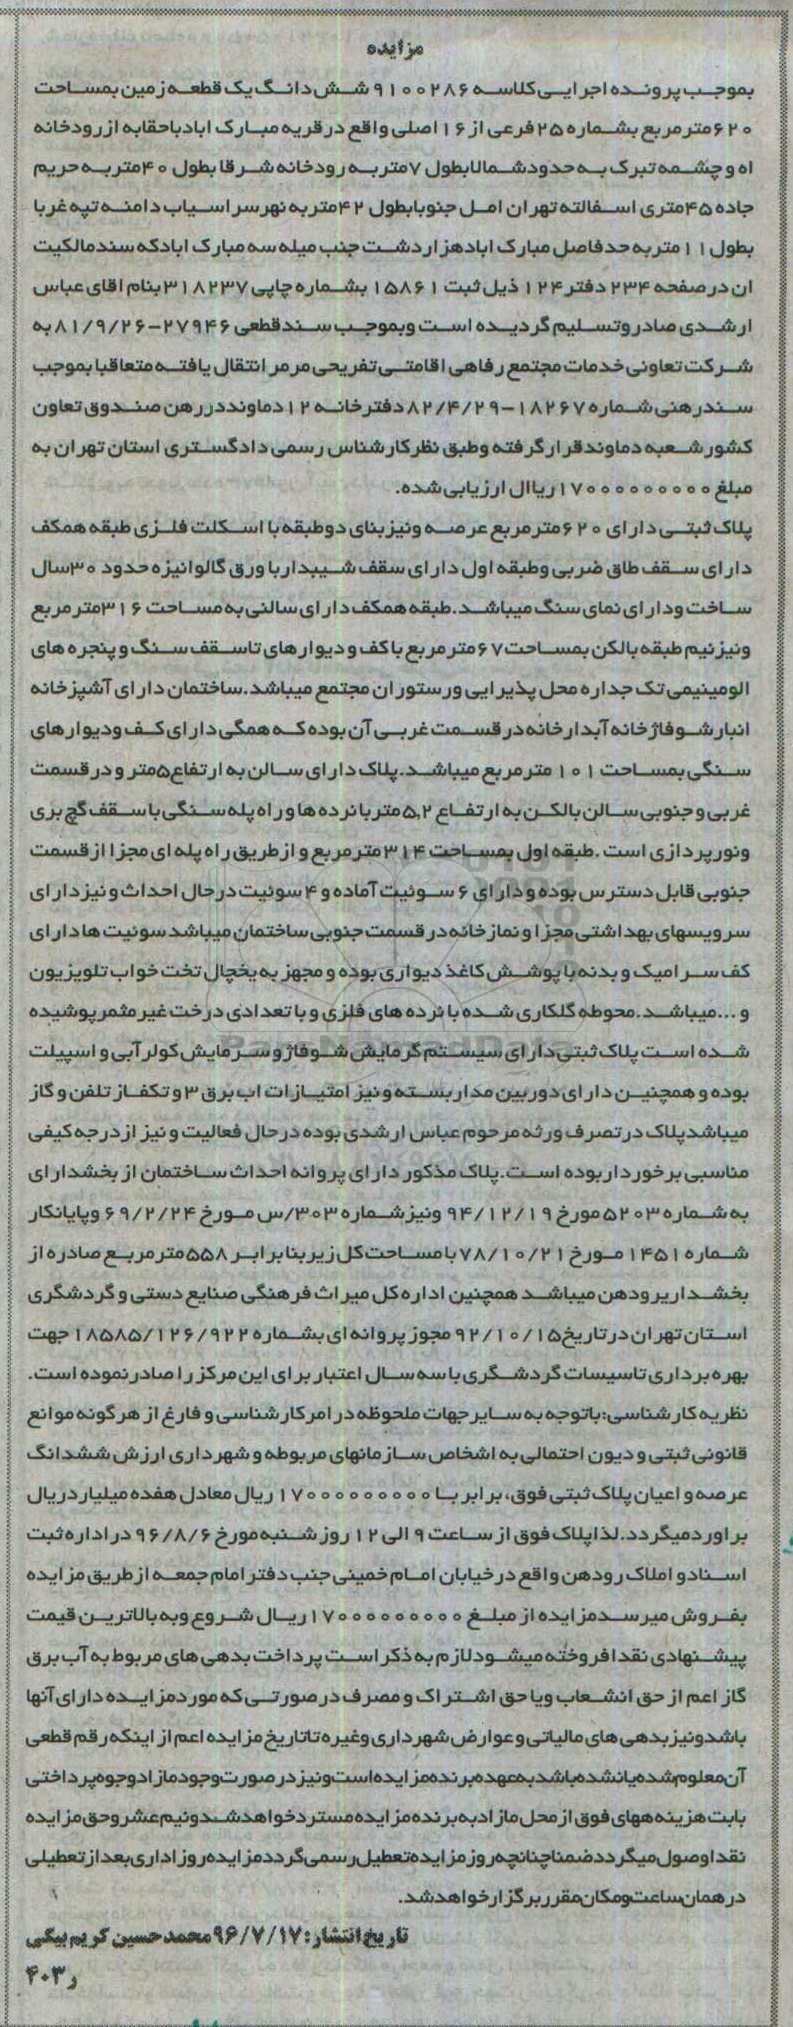 مزایده
بموجب پرونده اجرایی کلاسه ۹۱۰۰۲۸۶ شش دانگ یک قطعه زمین بمساحت
۶۲۰ مترمربع بشماره ۲۵ فرعی از ۱۶ اصلی واقع در قریه مبارک اباد باحقابه از رودخانه
اه و چشمه تبرک به حدود شمالا بطول ۷ متر به رودخانه شرقا بطول ۴۰ متر به حریم
جاده ۴۵ متری اسفالته تهران امل جنوبا بطول ۴۲ متر به نهر سر اسیاب دامنه تپه غربا
بطول ۱۱ متر به حد فاصل مبارک اباد هزاردشت جنب میله سه مبارک اباد که سند مالکیت
ان در صفحه ۲۳۴ دفتر ۱۲۴ ذیل ثبت ۱۵۸۶۱ بشماره چاپی ۳۱۸۲۳۷ بنام اقای عباس
ارشدی صادر و تسلیم گردیده است و بموجب سند قطعی ۲۷۹۴۶-۸۱/۹/۲۶ به
شرکت تعاونی خدمات مجتمع رفاهی اقامتی تفریحی مرمر انتقال یافته متعاقبا بموجب
سند رهنی شماره ۱۸۲۶۷-۸۲/۴/۲۹ دفترخانه ۱۲ دماوند در رهن صندوق تعاون
کشور شعبه دماوند قرار گرفته وطبق نظر کارشناس رسمی دادگستری استان تهران به
مبلغ ۱۷۰۰۰۰۰۰۰۰۰ ریاال ارزیابی شده.
پلاک ثبتی دارای ۶۲۰ متر مربع عرصه ونیز بنای دو طبقه با اسکلت فلزی طبقه همکف
دارای سقف طاق ضربی وطبقه اول دارای سقف شیبدار با ورق گالوانیزه حدود ۳۰ سال
ساخت ودارای نمای سنگ میباشد.طبقه همکف دارای سالنی به مساحت ۳۱۶ متر مربع
ونیز نیم طبقه بالکن بمساحت ۶۷ متر مربع با کف و دیوارهای تاسقف سنگ و پنجره های
الومینیمی تک جداره محل پذیرایی ورستوران مجتمع میباشد.ساختمان دارای آشپزخانه
انبار شوفاژخانه آبدارخانه در قسمت غربی آن بوده که همگی دارای کف ودیوارهای
سنگی بمساحت ۱۰۱ متر مربع میباشد.پلاک دارای سالن به ارتفاع ۵ متر و در قسمت
غربی و جنوبی سالن بالکن به ارتفاع ۵٫۲ متر با نرده ها و راه پله سنگی با سقف گچ بری
ونورپردازی است .طبقه اول بمساحت ۳۱۴ متر مربع و از طریق راه پله ای مجزا از قسمت
جنوبی قابل دسترس بوده و دارای ۶ سوئیت آماده و ۴ سوئیت درحال احداث و نیز دارای
سرویسهای بهداشتی مجزا و نمازخانه در قسمت جنوبی ساختمان میباشد سوئیت ها دارای
کف سرامیک و بدنه با پوشش کاغذ دیواری بوده و مجهز به یخچال تخت خواب تلویزیون
و ...میباشد.محوطه گلکاری شده با نرده های فلزی و با تعدادی درخت غیر مثمر پوشیده
شده است پلاک ثبتی دارای سیستم گرمایش شوفاژ و سرمایش کولر آبی و اسپیلت
بوده و همچنین دارای دوربین مدار بسته و نیز امتیازات اب برق ۳ و تکفاز تلفن و گاز
میباشد پلاک در تصرف ورثه مرحوم عباس ارشدی بوده در حال فعالیت و نیز از درجه کیفی
مناسبی برخوردار بوده است.پلاک مذکور دارای پروانه احداث ساختمان از بخشدارای
به شماره ۵۲۰۳ مورخ ۹۴/۱۲/۱۹ ونیز شماره ۳۰۳/س مورخ ۶۹/۲/۲۴ وپایانکار
شماره ۱۴۵۱ مورخ ۷۸/۱۰/۲۱ با مساحت کل زیربنا برابر ۵۵۸ متر مربع صادره از
بخشداری رودهن میباشد همچنین اداره کل میراث فرهنگی صنایع دستی و گردشگری
استان تهران در تاریخ ۹۲/۱۰/۱۵ مجوز پروانه ای بشماره ۱۸۵۸۵/۱۲۶/۹۲۲ جهت
بهره برداری تاسیسات گردشگری با سه سال اعتبار برای این مرکز را صادر نموده است.
نظریه کارشناسی:باتوجه به سایر جهات ملحوظه در امر کارشناسی و فارغ از هرگونه موانع
قانونی ثبتی و دیون احتمالی به اشخاص سازمانهای مربوطه و شهرداری ارزش ششدانگ
عرصه و اعیان پلاک ثبتی فوق، برابر با ۱۷۰۰۰۰۰۰۰۰۰ ریال معادل هفده میلیارد ریال
براورد میگردد.لذا پلاک فوق از ساعت ۹ الی ۱۲ روز شنبه مورخ ۹۶/۸/۶ در اداره ثبت
اسناد و املاک رودهن واقع در خیابان امام خمینی جنب دفتر امام جمعه از طریق مزایده
بفروش میرسد مزایده از مبلغ ۱۷۰۰۰۰۰۰۰۰۰ ریال شروع وبه بالاترین قیمت
پیشنهادی نقدا فروخته میشود لازم به ذکر است پرداخت بدهی های مربوط به آب برق
گاز اعم از حق انشعاب ویا حق اشتراک و مصرف در صورتی که مورد مزایده دارای آنها
باشد ونیز بدهی های مالیاتی و عوارض شهرداری وغیره تا تاریخ مزایده اعم از اینکه رقم قطعی
آن معلوم شده یا نشده باشد به عهده برنده مزایده است ونیز در صورت وجود مازاد وجوه پرداختی
بابت هزینه ههای فوق از محل مازاد به برنده مزایده مسترد خواهد شد ونیم عشر وحق مزایده
نقدا وصول میگردد ضمنا چنانچه روز مزایده تعطیل رسمی گردد مزایده روز اداری بعد از تعطیلی
در همان ساعت ومکان مقرر برگزار خواهد شد.
تاریخ انتشار: ۹۶/۷/۱۷ محمد حسین کریم بیگی
ر۴۰۳
ParsNamadData